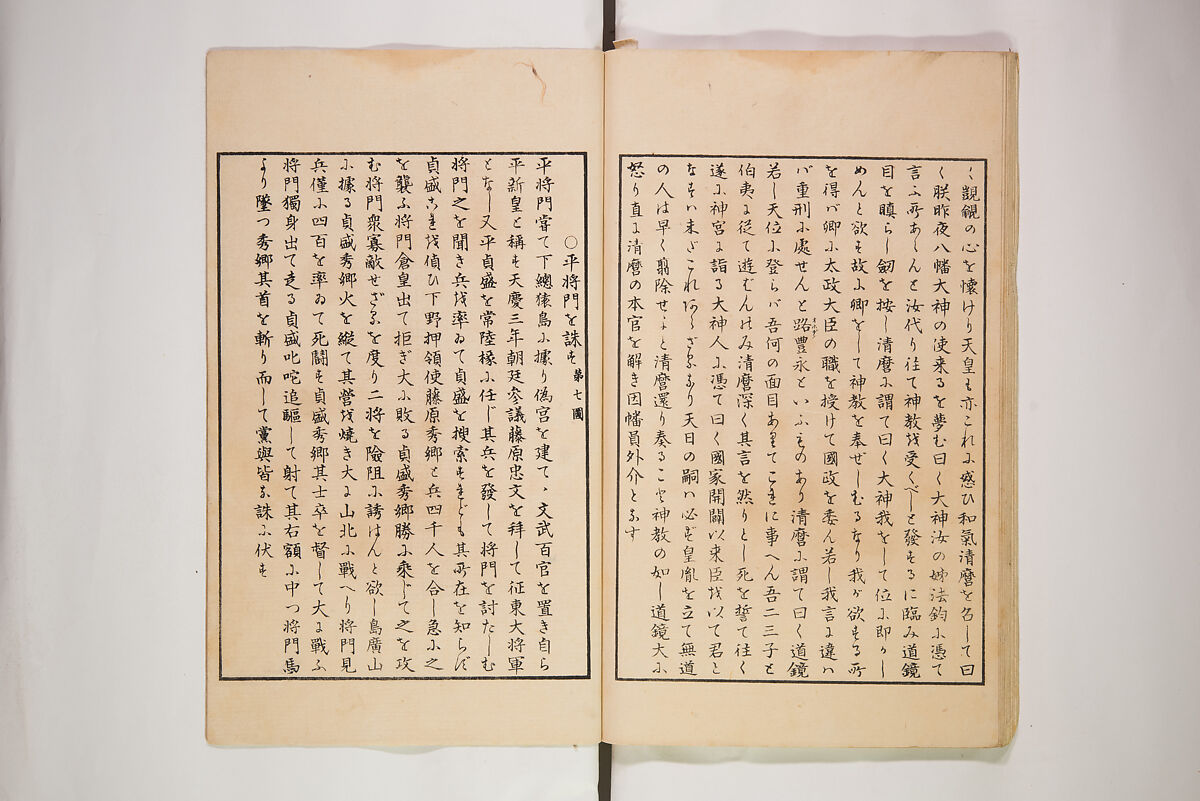 く覬覦の心を懐けり天皇も亦これに惑ひ和氣清麿を召して曰
く朕昨夜八幡大神の使来るを夢む曰く大神汝の姉法鈞に憑て
言ふ所あらんと汝代り往て神教を受くべしと發するに臨み道鏡
目を瞋らし劒を按し清麿に謂て曰く大神我をして位に即かし
めんと欲す故に卿をして神教を奉ぜしむるなり我が欲する所
を得バ卿に太政大臣の職を授けて國政を委ん若し我言に違ハ
バ重刑に處せんと路豊永といふものあり清麿に謂て曰く道鏡
若し天位に登らバ吾何の面目ありてこれに事へん吾二三子と
伯夷に従て遊ばんのみ清麿深く其言を然りとし死を誓て往く
遂に神宮に詣る大神人に憑て曰く國家開闢以来臣を以て君と
なすハ未だこれあらざるなり天日の嗣ハ必ず皇胤を立て無道
の人は早く剪除せよと清麿還り奏ること神教の如し道鏡大に
怒り直に清麿の本官を解き因幡員外介となす
○平将門を誅す 第七國
平将門嘗て下總猿島に據り偽宮を建て丶文武百官を置き自ら
平新皇と稱す天慶三年朝廷参議藤原忠文を拜して征東大将軍
となし又平貞盛を常陸掾に任じ其兵を發して将門を討たしむ
将門之を聞き兵を率ゐて貞盛を搜索すれども其所在を知らず
貞盛これを偵ひ下野押領使藤原秀郷と兵四千人を合し急に之
を襲ふ将門倉皇出て拒ぎ大に敗る貞盛秀郷勝に乗じて之を攻
む将門衆寡敵せざるを度り二将を險阻に誘はんと欲し島廣山
に據る貞盛秀郷火を縱て其營を焼き大に山北に戰へり将門見
兵僅に四百を率ゐて死鬪す貞盛秀郷其士卒を督して大に戰ふ
将門獨身出て走る貞盛叱咤追驅して射て其右額に中つ将門馬
より墜つ秀郷其首を斬り而して黨與皆な誅に伏す